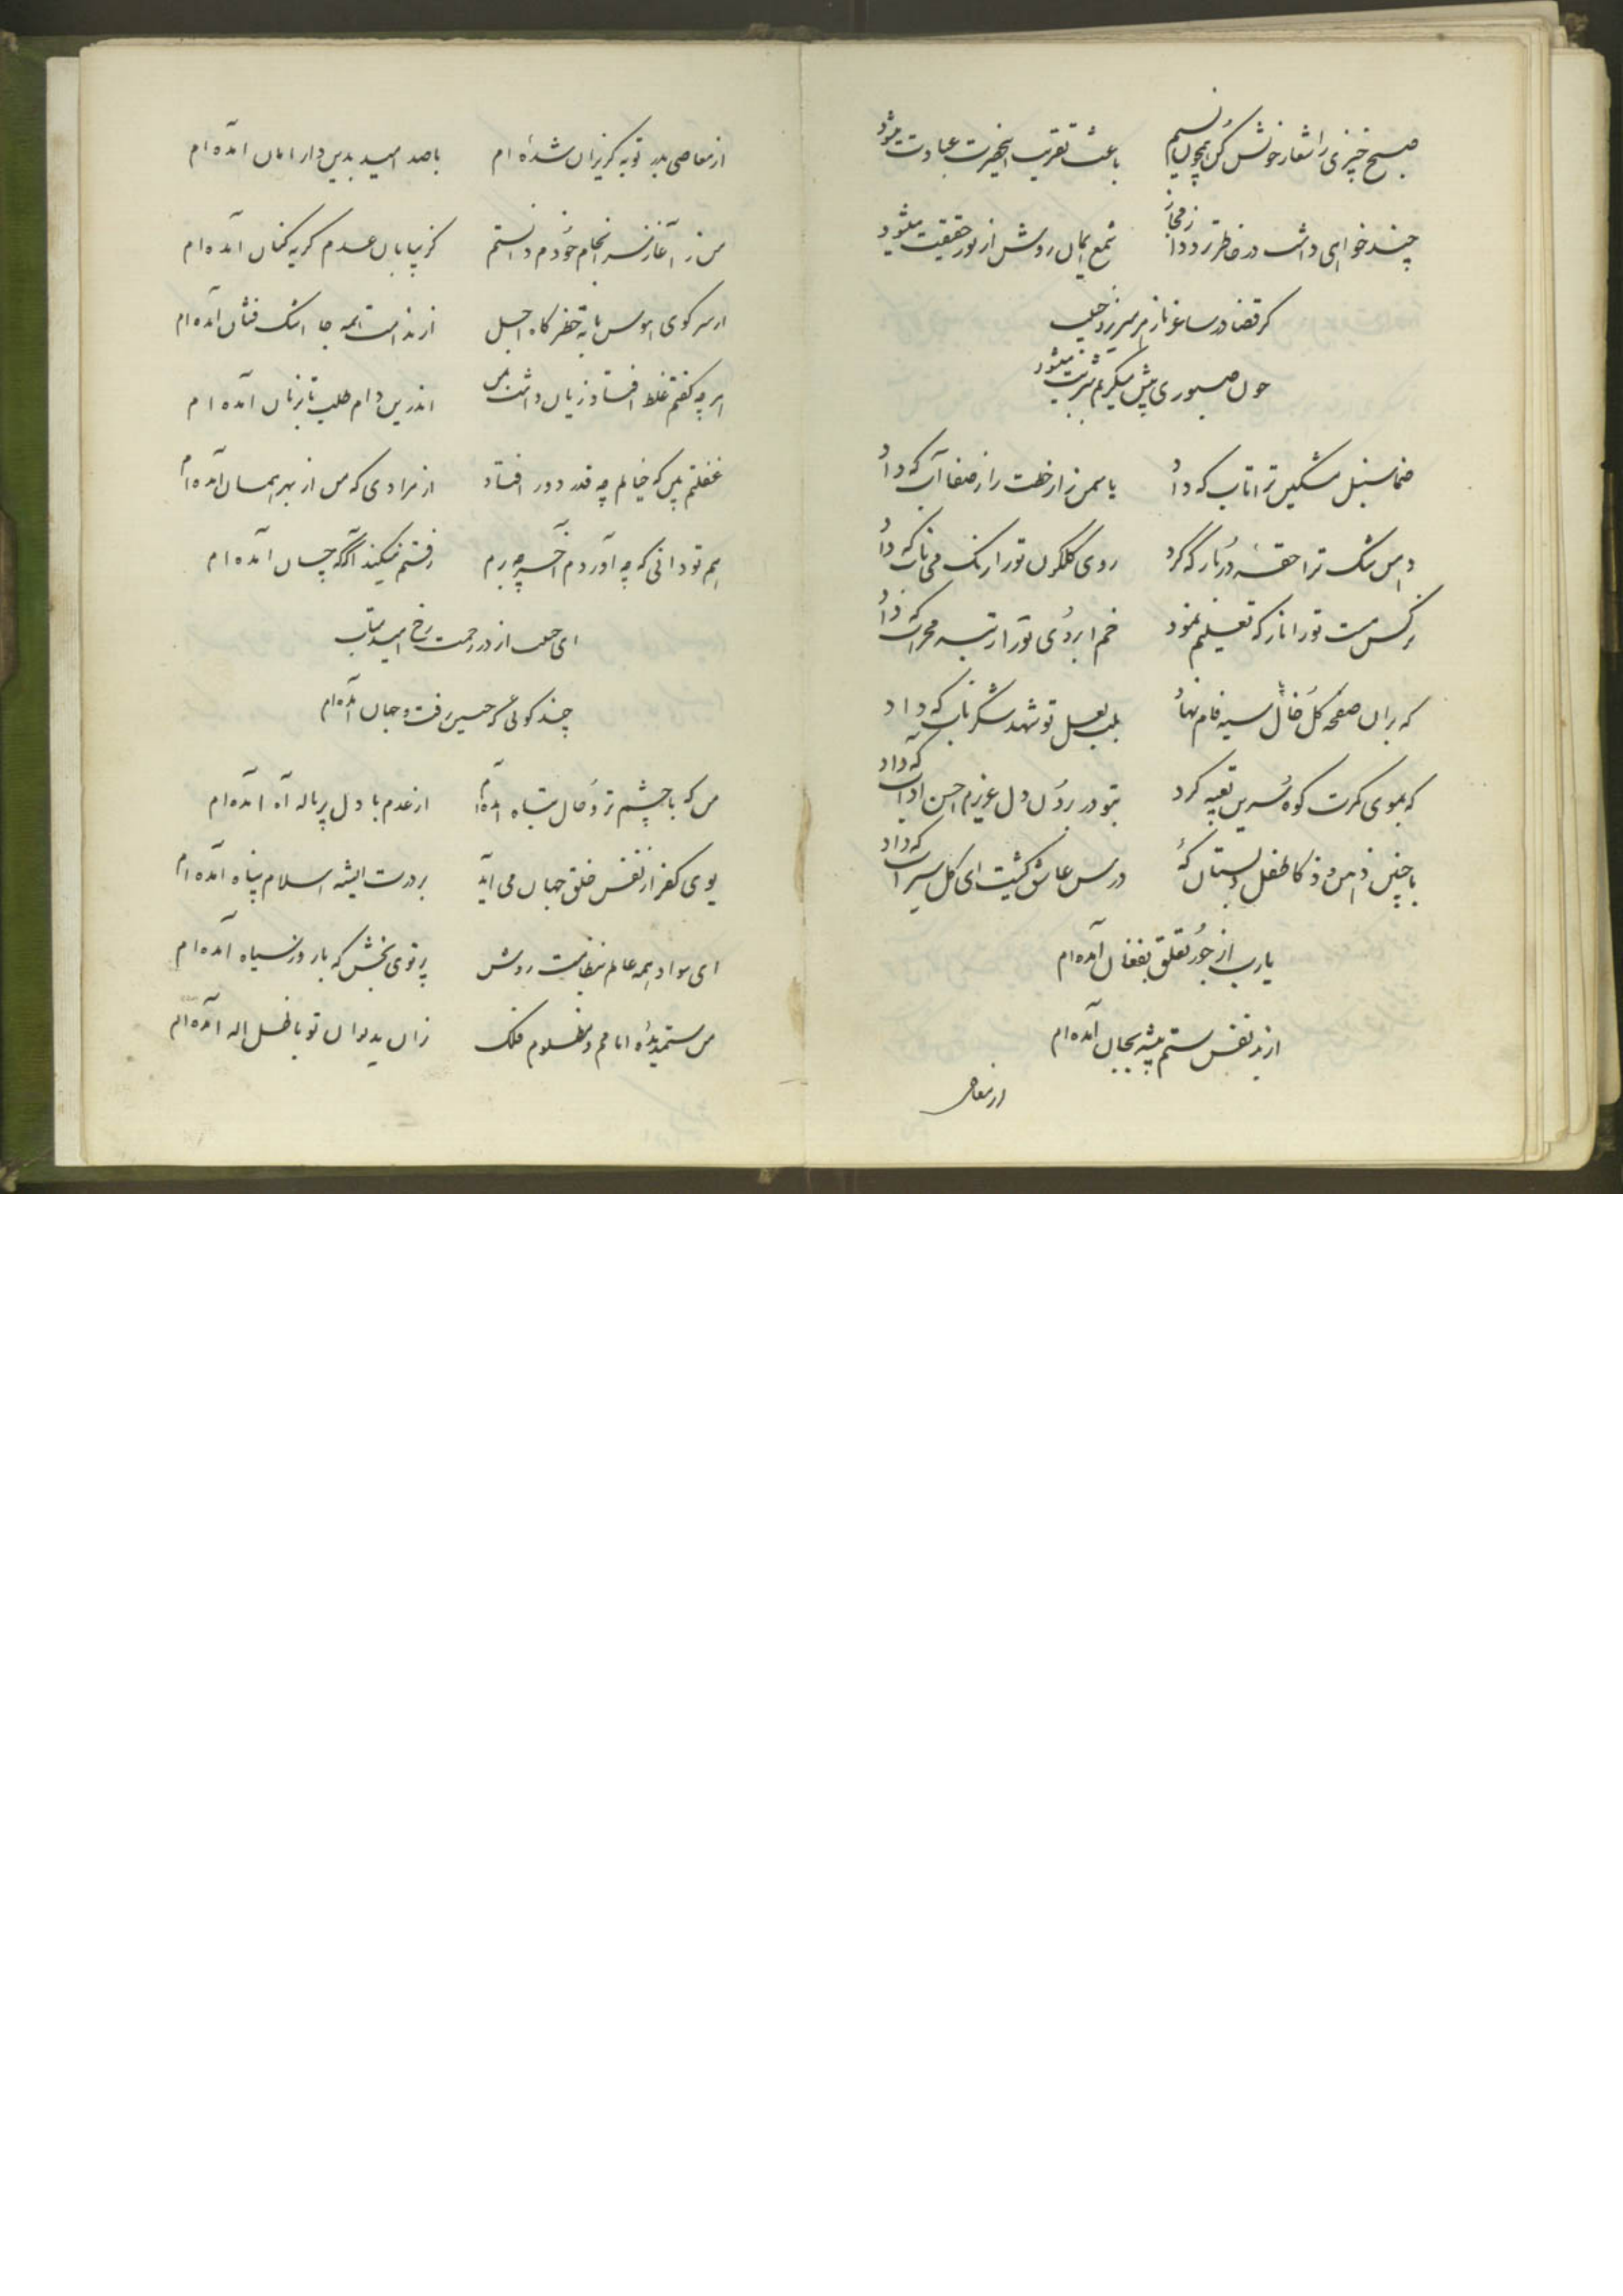 صبح خیزی را شعار خویش کن همچون نسیم باعث تقریب آنحضرت عبادت میشود
چند خواهی داشت در خاطر تردد از مجاز شمع ایمان روشن از نور حقیقت میشود
گر قضا در ساغر ناز زهر میریزد حبیب
چون صبوری پیش میگیریم شربت میشود
صنما سنبل مشکین ترا تاب که داد یاسمن زار خطت را ز صفا آب که داد
دهن تنگ ترا حقهٔ دربار که کرد روی گلگون تو را رنگ می ناب که داد
نرگس مست تو را ناز که تعلیم نمود خم ابروی تو را رتبه محراب که داد
که بران صفحه گل خال سیه فام نهاد بلب لعل تو شهد شکر ناب که داد
که بموی کمرت کوه سرین تعبیه کرد بتو در بردن دل عزیزم احسن آداب که داد
با چنین ذهن و ذکا طفل دبستان که درس عاشق کشیت ای گل سیراب که داد
یارب از جور تعلق بفغان آمده ام
از بد نفس ستم پیشه بجان آمده ام
از معاصی
از معاصی بدر توبه گریزان شده ام باصد امید بدین دار امان آمده ام
من ز آغاز سرانجام خودم دانستم کز بیابان عدم گریه کنان آمده ام
از سر کوی هوس تا به خطرگاه اجل از ندامت همه جا اشک فشان آمده ام
هر چه گفتم غلط افتاد و زیان داشت بمن اندرین دام طلب تا بزبان آمده ام
غفلتم بین که خیالم چه قدر دور افتاد از مرادی که من از بهر همان آمده ام
هم تو دانی که چه آوردم و آخر چه برم رفتنم نیکند آگه چسان آمده ام
ای حبیب از در رحمت رخ امید متاب
چند گوئی که حسین رفت و جهان آمده ام
من که با چشم تر و حال تباه آمده ام از عدم با دل پر ناله و آه آمده ام
بوی کفر از نفس خلق جهان می آید بر درت ایشه اسلام پناه آمده ام
ای سواد همه عالم بنظامت روشن پرتوی بخش که با روز سیاه آمده ام
من ستمدیدهٔ ایامم و مظلوم فلک زان بدیوان تو با ظل اله آمده ام